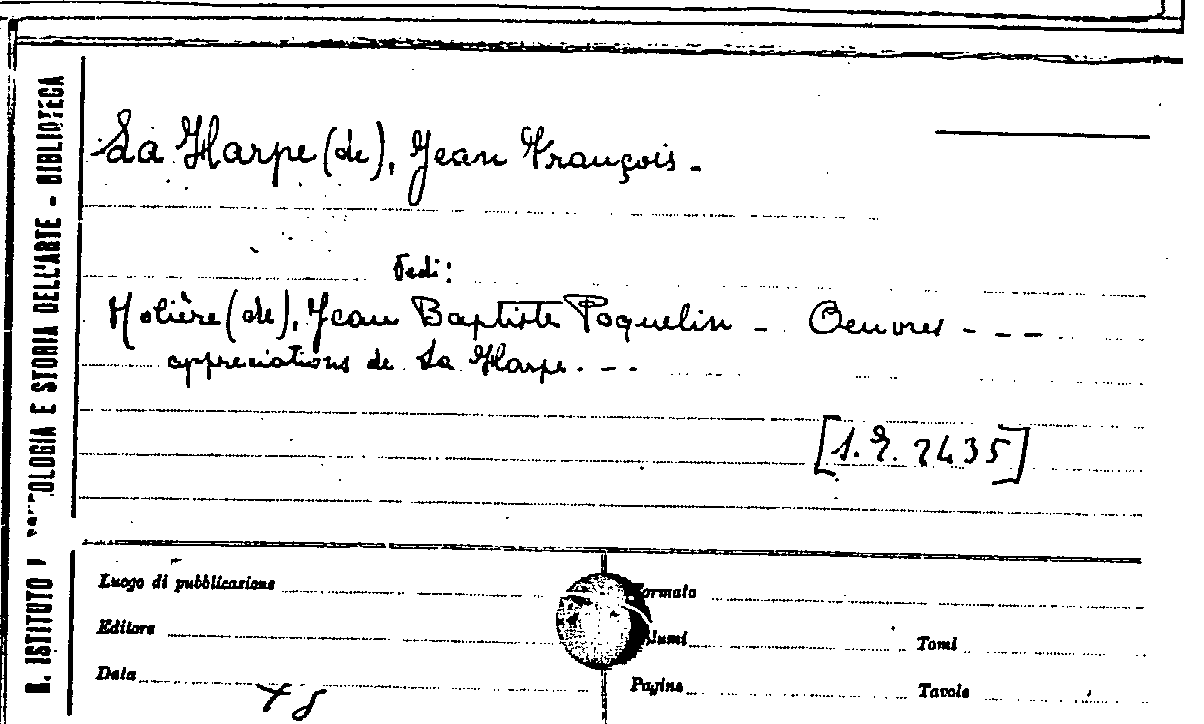 R. ISTITUTO OLOGIA E STORIA DELL'ARTE - BIBLIOTECA
La Harpe (de), Jean François -
Vedi:
Molière (de), Jean Baptiste Poquelin - Oeuvres - - -
appreciations de La Harpe. - -
Luogo di pubblicazione
Formato
Editore
lumi
Tomi
Data
Pagine
Tavole